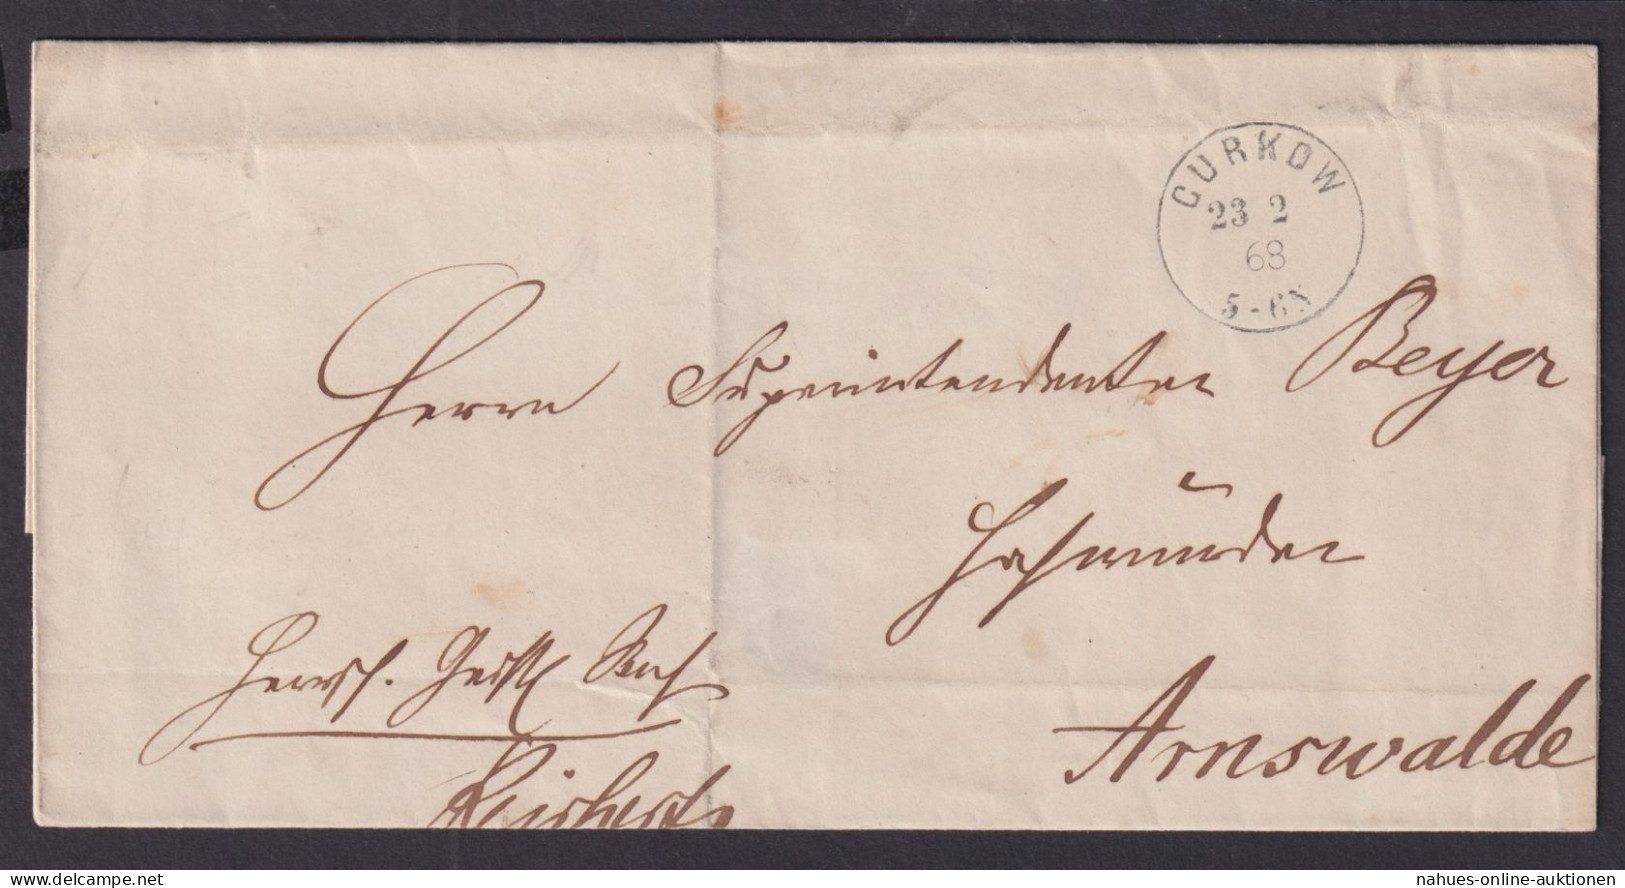 GURKOW
23 2
68
5-6N
Herrn Superintendenten Beyer
Hochwürden
Arnswalde
Herrsch. Geistl. Sach
delcampe.net
nahues-online-auktionen